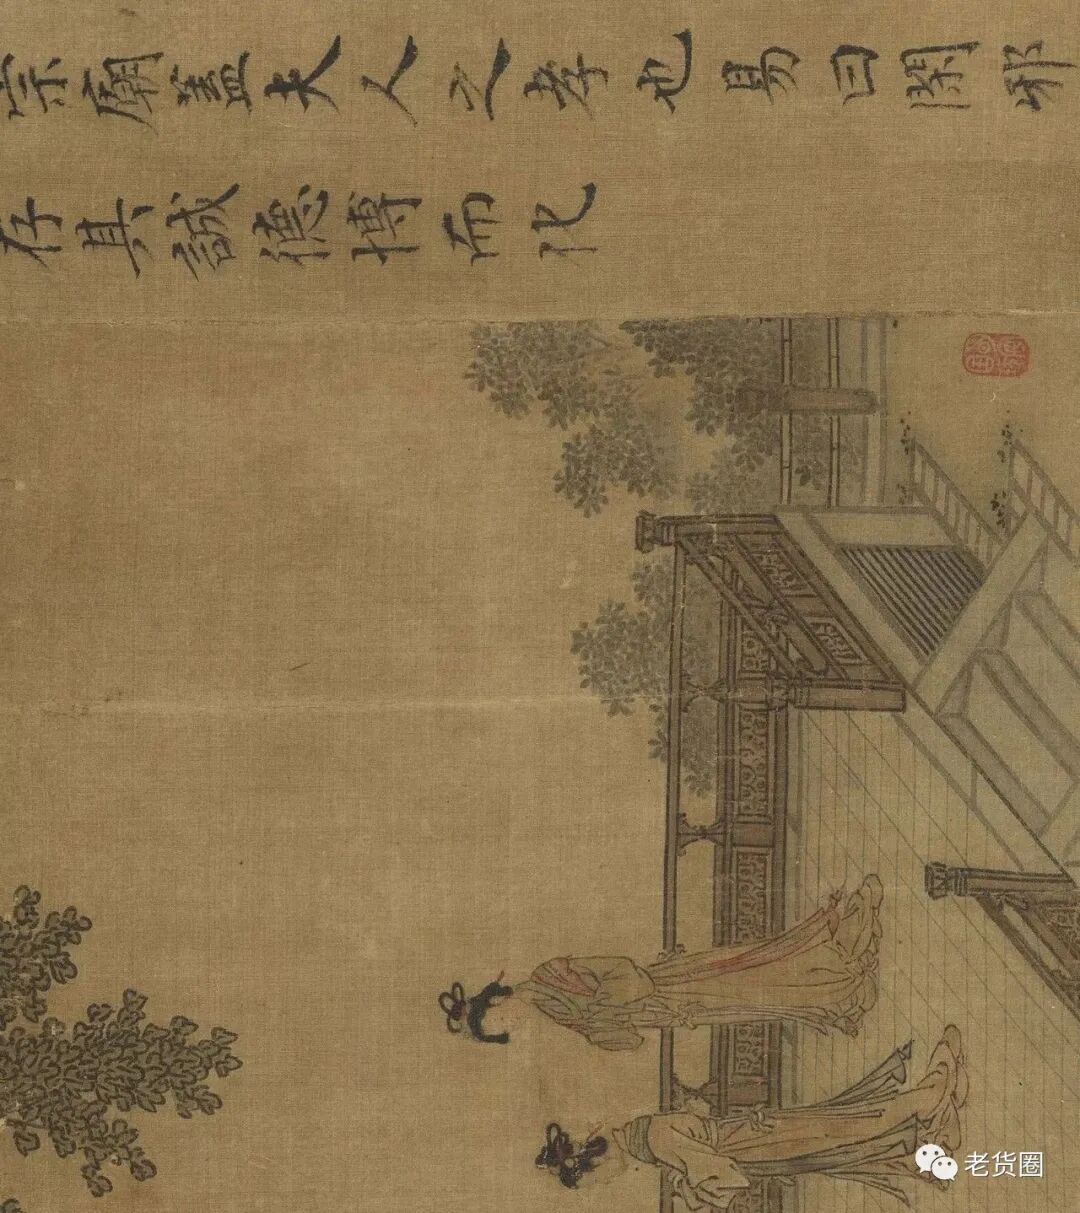 宗廟盖夫人之孝也易曰閑邪
存其誠德博而化
老货圈